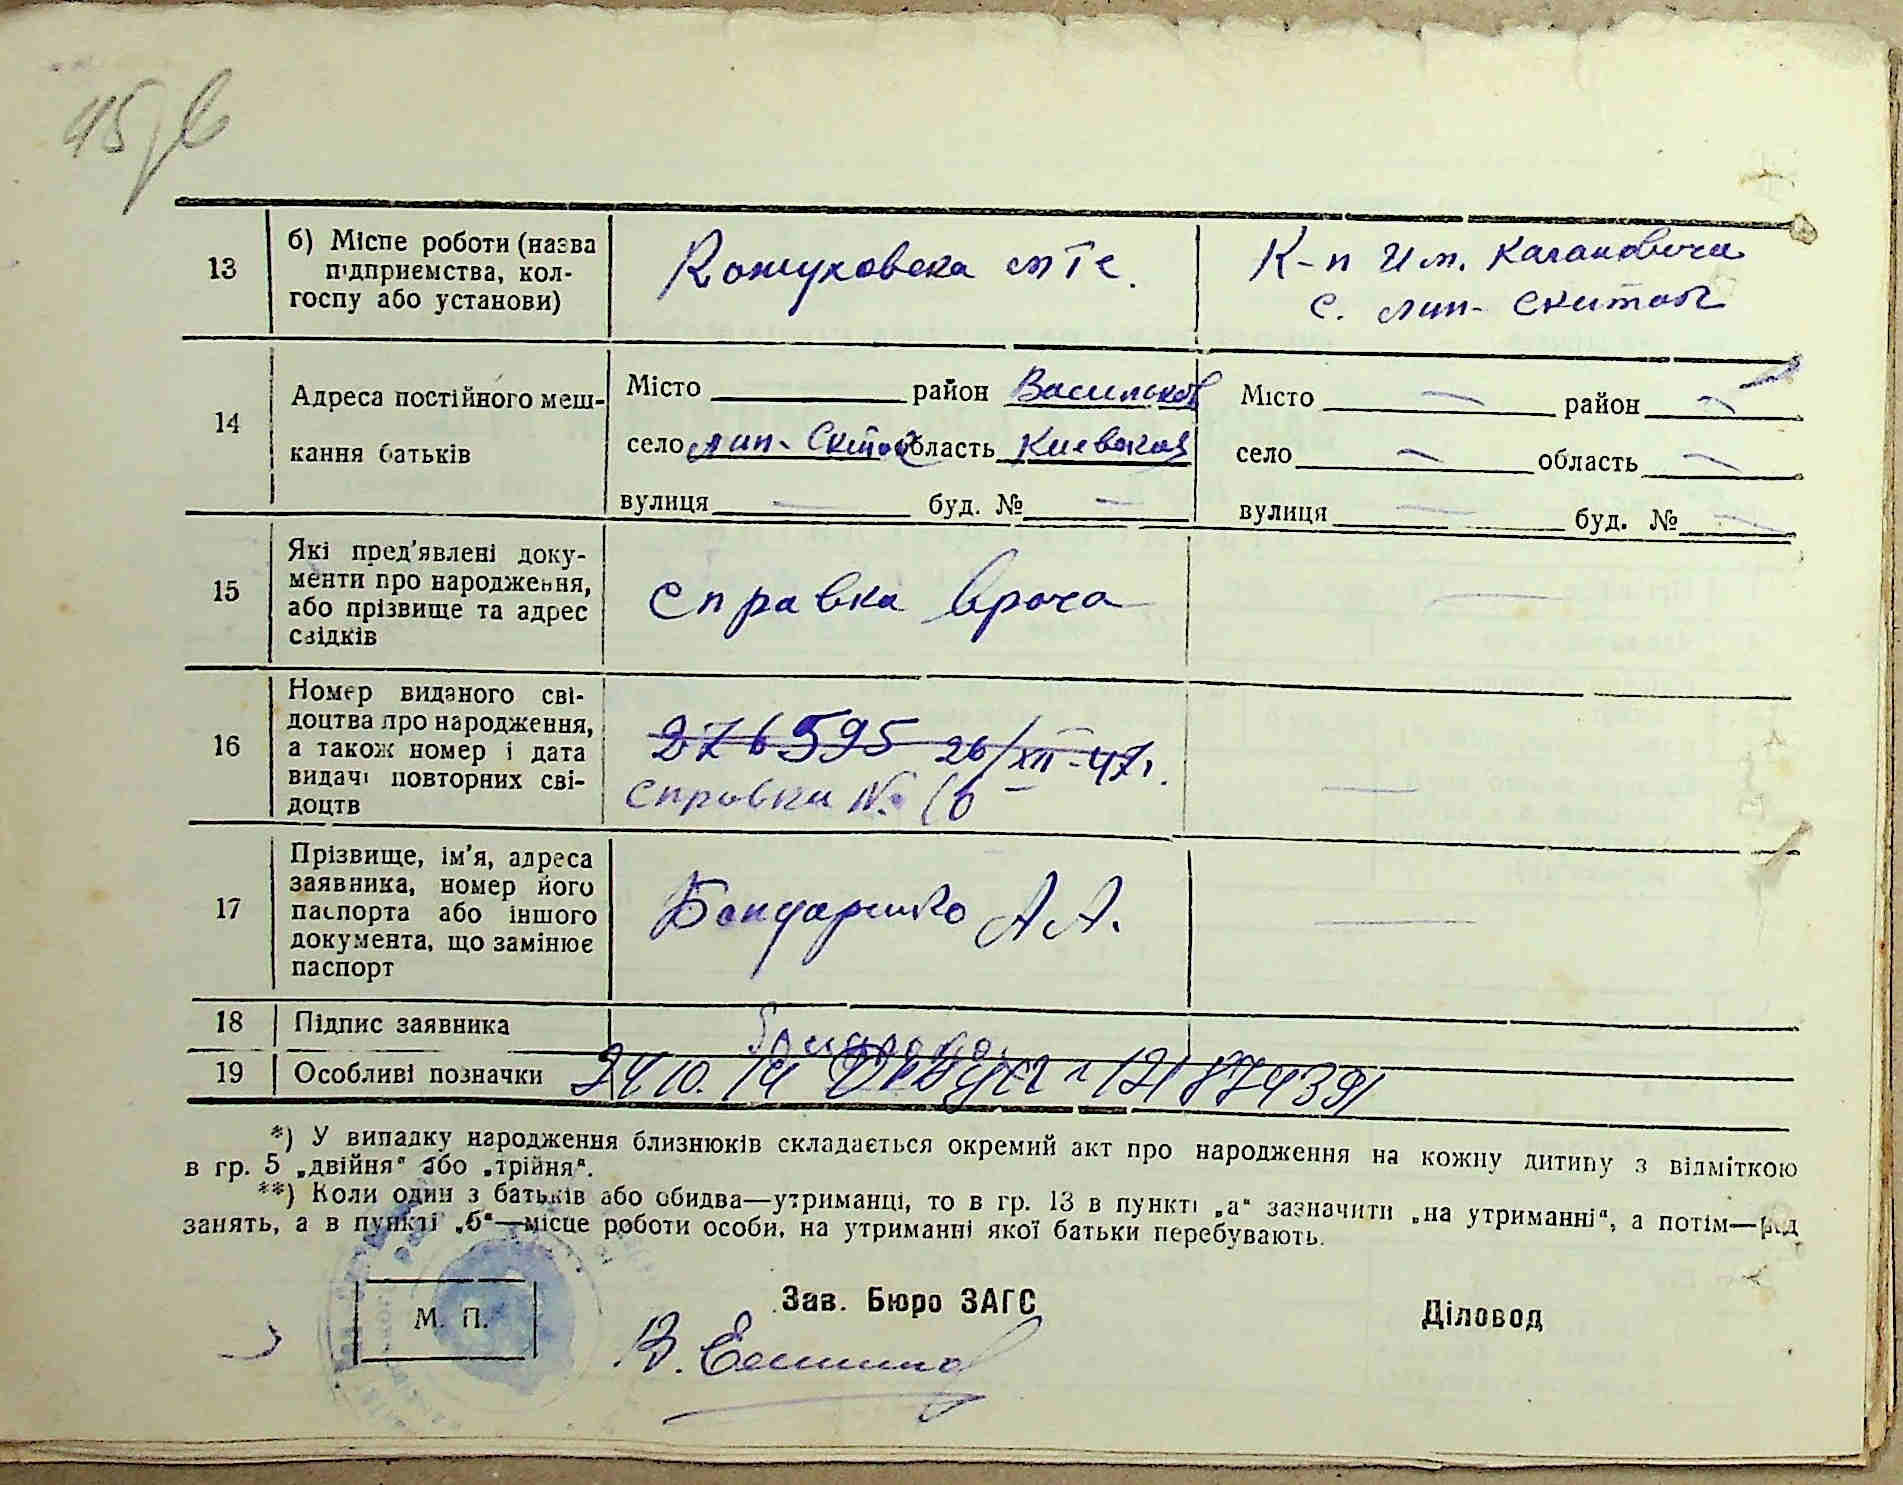 45
13
б) Місце роботи (назва
підприємства, кол-
госпу або установи)
Кожуховска мтс.
К-п Им. Кагановича
с. Лип- Скиток
14
Адреса постійного меш-
кання батьків
Місто район Васильков
село Лип- Скиток область Киевская
вулиця — буд. № —
Місто — район —
село — область —
вулиця — буд. № —
15
Які пред'явлені доку-
менти про народження,
або прізвище та адрес
свідків
Справка врача
—
16
Номер виданого сві-
доцтва про народження,
а також номер і дата
видачі повторних сві-
доцтв
276595 26/XII-47г.
Справка №
—
17
Прізвище, ім'я, адреса
заявника, номер його
паспорта або іншого
документа, що замінює
паспорт
Бондаренко А А.
—
18
Підпис заявника
19
Особливі позначки
24 10. 14
*) У випадку народження близнюків складається окремий акт про народження на кожну дитину з відміткою
в гр. 5 „двійня" або „трійня".
**) Коли один з батьків або обидва—утриманці, то в гр. 13 в пункті „а" зазначити „на утриманні", а потім—рід
занять, а в пункті „б"—місце роботи особи, на утриманні якої батьки перебувають.
М. П.
Зав. Бюро ЗАГС
Діловод